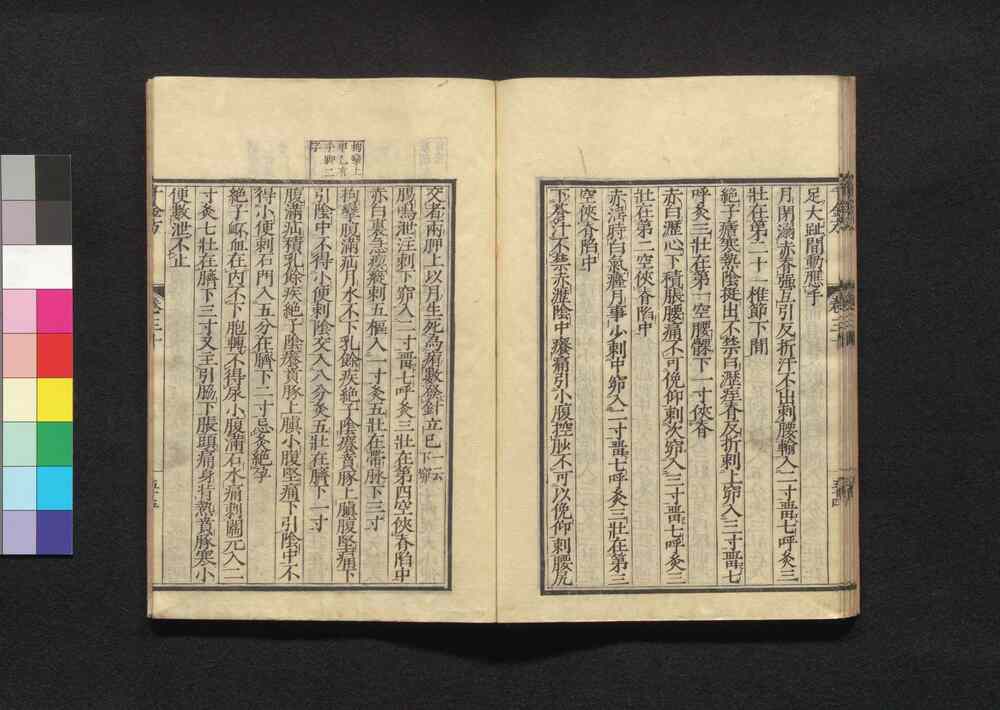 足大趾間動應手
月閉溺赤脊強互引反折汗不出刺腰輸入二寸留七呼灸三
壯在第二十一椎節下間
絶子瘧寒熱陰挺出不禁白瀝痓脊反折刺上窌入三寸留七
呼灸三壯在第一空腰髁下一寸俠脊
赤白瀝心下積脹腰痛不可俛仰刺次窌入三寸留七呼灸三
壯在第二空俠脊陷中
赤淫時白氣癃月事少刺中窌入二寸留七呼灸三壯在第三
空俠脊陷中
下蒼汁不禁赤瀝陰中癢痛引小腹控䏚不可以俛仰刺腰尻
交者兩胂上以月生死爲痏數發針立已一云下窌
腸鳴泄注刺下窌入二寸留七呼灸三壯在第四空俠脊陷中
赤白裏急瘈瘲刺五樞入一寸灸五壯在帶脉下三寸
拘攣腹滿疝月水不下乳餘疾絶子陰癢賁豚上䐜腹堅痛下
引陰中不得小便刺陰交入八分灸五壯在臍下一寸
腹滿疝積乳餘疾絶子陰癢賁豚上䐜小腹堅痛下引陰中不
得小便刺石門入五分在臍下二寸忌灸絶孕
絶子衃血在内不下胞轉不得尿小腹滿石水痛刺關元入二
寸灸七壯在臍下三寸又主引脇下脹頭痛身背熱賁豚寒小
便數泄不止
拘攣上
甲乙有
手脚二
字
千金方
卷三十
五十五